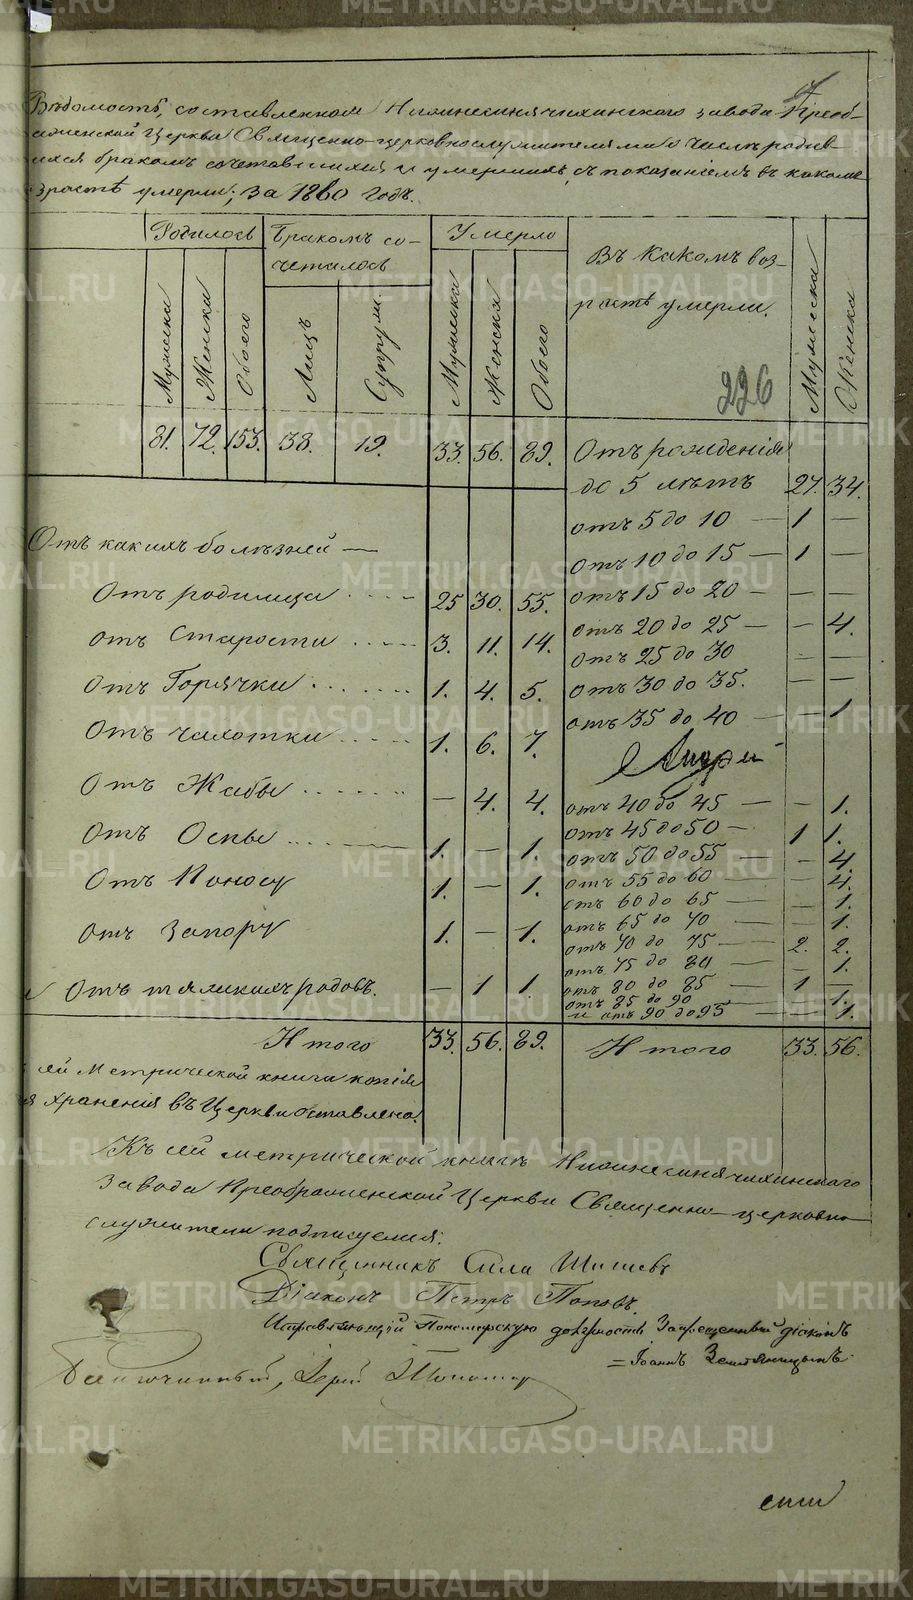 Вѣдомость, составленная Нижнесинячихинскаго завода Преоб-
раженской Церкви Священно-церковнослужителями о числѣ родив-
шихся бракомъ сочетавшихся и умершихъ, съ показаніемъ въ какомъ
возрастѣ умерли; за 1860 годъ.
Родилось Бракомъ со- Умерло Въ какомъ воз-
четалось растѣ умерли.
Мужеска Женска Обоего Лицъ Супруж. Мужеска Женска Обоего Мужеска Женска
226
81. 72. 153. 38. 19. 33. 56. 89. Отъ рожденія
до 5 лѣтъ 27. 34.
отъ 5 до 10 — 1 —
Отъ какихъ болѣзней — отъ 10 до 15 — 1 —
Отъ родимца .... 25 30. 55. отъ 15 до 20 — — —
отъ Старости .... 3. 11. 14. отъ 20 до 25 — — 4.
отъ 25 до 30 — —
отъ Горячки ....... 1. 4. 5. отъ 30 до 35. — —
отъ 35 до 40 — — 1
Отъ чахотки ..... 1. 6. 7.
Отъ Жабы ....... — 4. 4. отъ 40 до 45 — — 1.
отъ 45 до 50 — 1 1.
Отъ Оспы ....... 1. — 1. отъ 50 до 55 — — 4.
Отъ Поносу 1. — 1. отъ 55 до 60 — — 4.
отъ 60 до 65 — — 1.
отъ 65 до 70 — — 1.
отъ Запору 1. — 1. отъ 70 до 75 — 2. 2.
отъ 75 до 80 — — 1.
и Отъ тяжкихъ родовъ. — 1 1. отъ 80 до 85 — 1 —
отъ 85 до 90 — — 1.
и отъ 90 до 95 — — 1.
Итого 33. 56. 89. Итого 33. 56.
сей Метрической книги копія
для храненія въ Церкви оставлена.
Къ сей метрической книгѣ Нижнесинячихинскаго
завода Преображенской Церкви Священно-церковно
служители подписуемся:
Священникъ Сила Шишевъ
Діаконъ Петръ Поповъ.
Исправляющій Пономарскую должность Запрещенный діаконъ
= Іоаннъ Земляницынъ
Благочинный, Іерей
METRIKI.GASO-URAL.RU